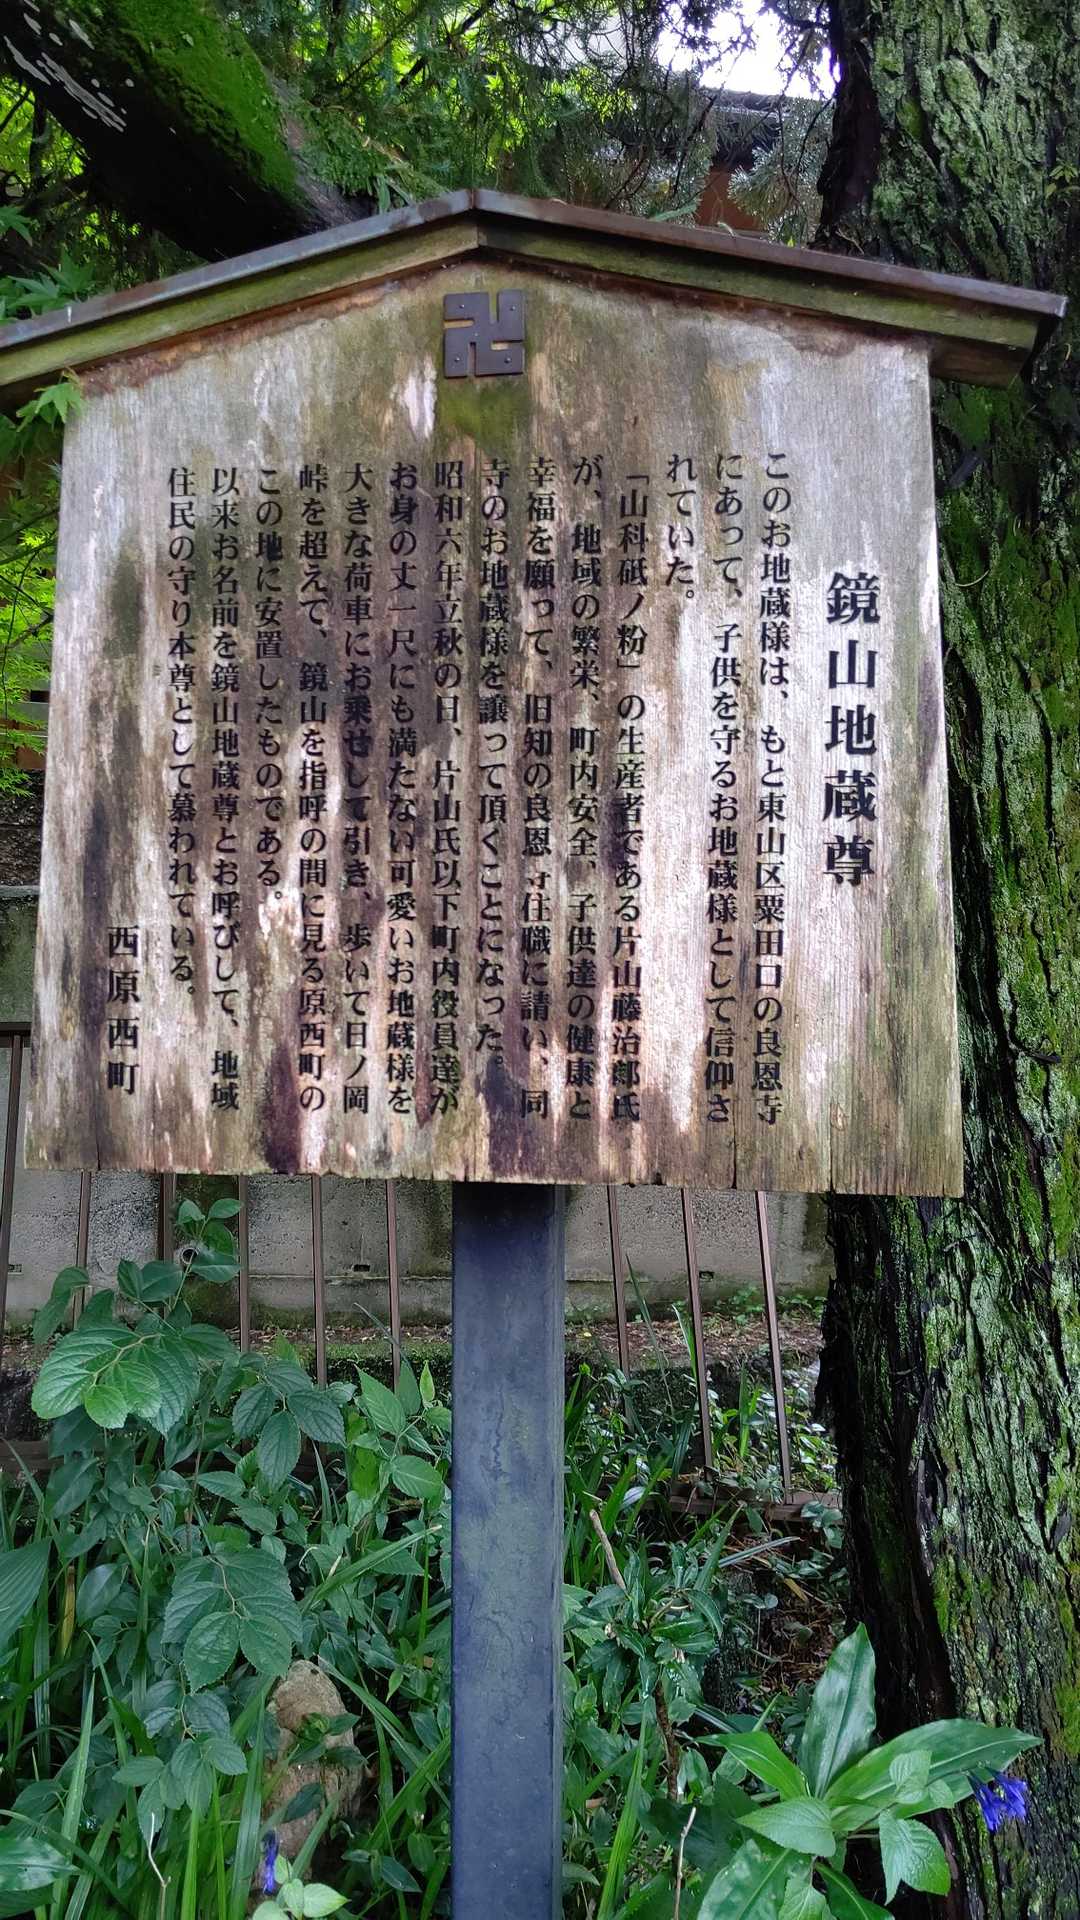 鏡山地蔵尊
このお地蔵様は、もと東山区粟田口の良恩寺
にあって、子供を守るお地蔵様として信仰さ
れていた。
「山科砥ノ粉」の生産者である片山藤治郎氏
が、地域の繁栄、町内安全、子供達の健康と
幸福を願って、旧知の良恩寺住職に請い、同
寺のお地蔵様を譲って頂くことになった。
昭和六年立秋の日、片山氏以下町内役員達が
お身の丈一尺にも満たない可愛いお地蔵様を
大きな荷車にお乗せして引き、歩いて日ノ岡
峠を超えて、鏡山を指呼の間に見る原西町の
この地に安置したものである。
以来お名前を鏡山地蔵尊とお呼びして、地域
住民の守り本尊として慕われている。
西原西町